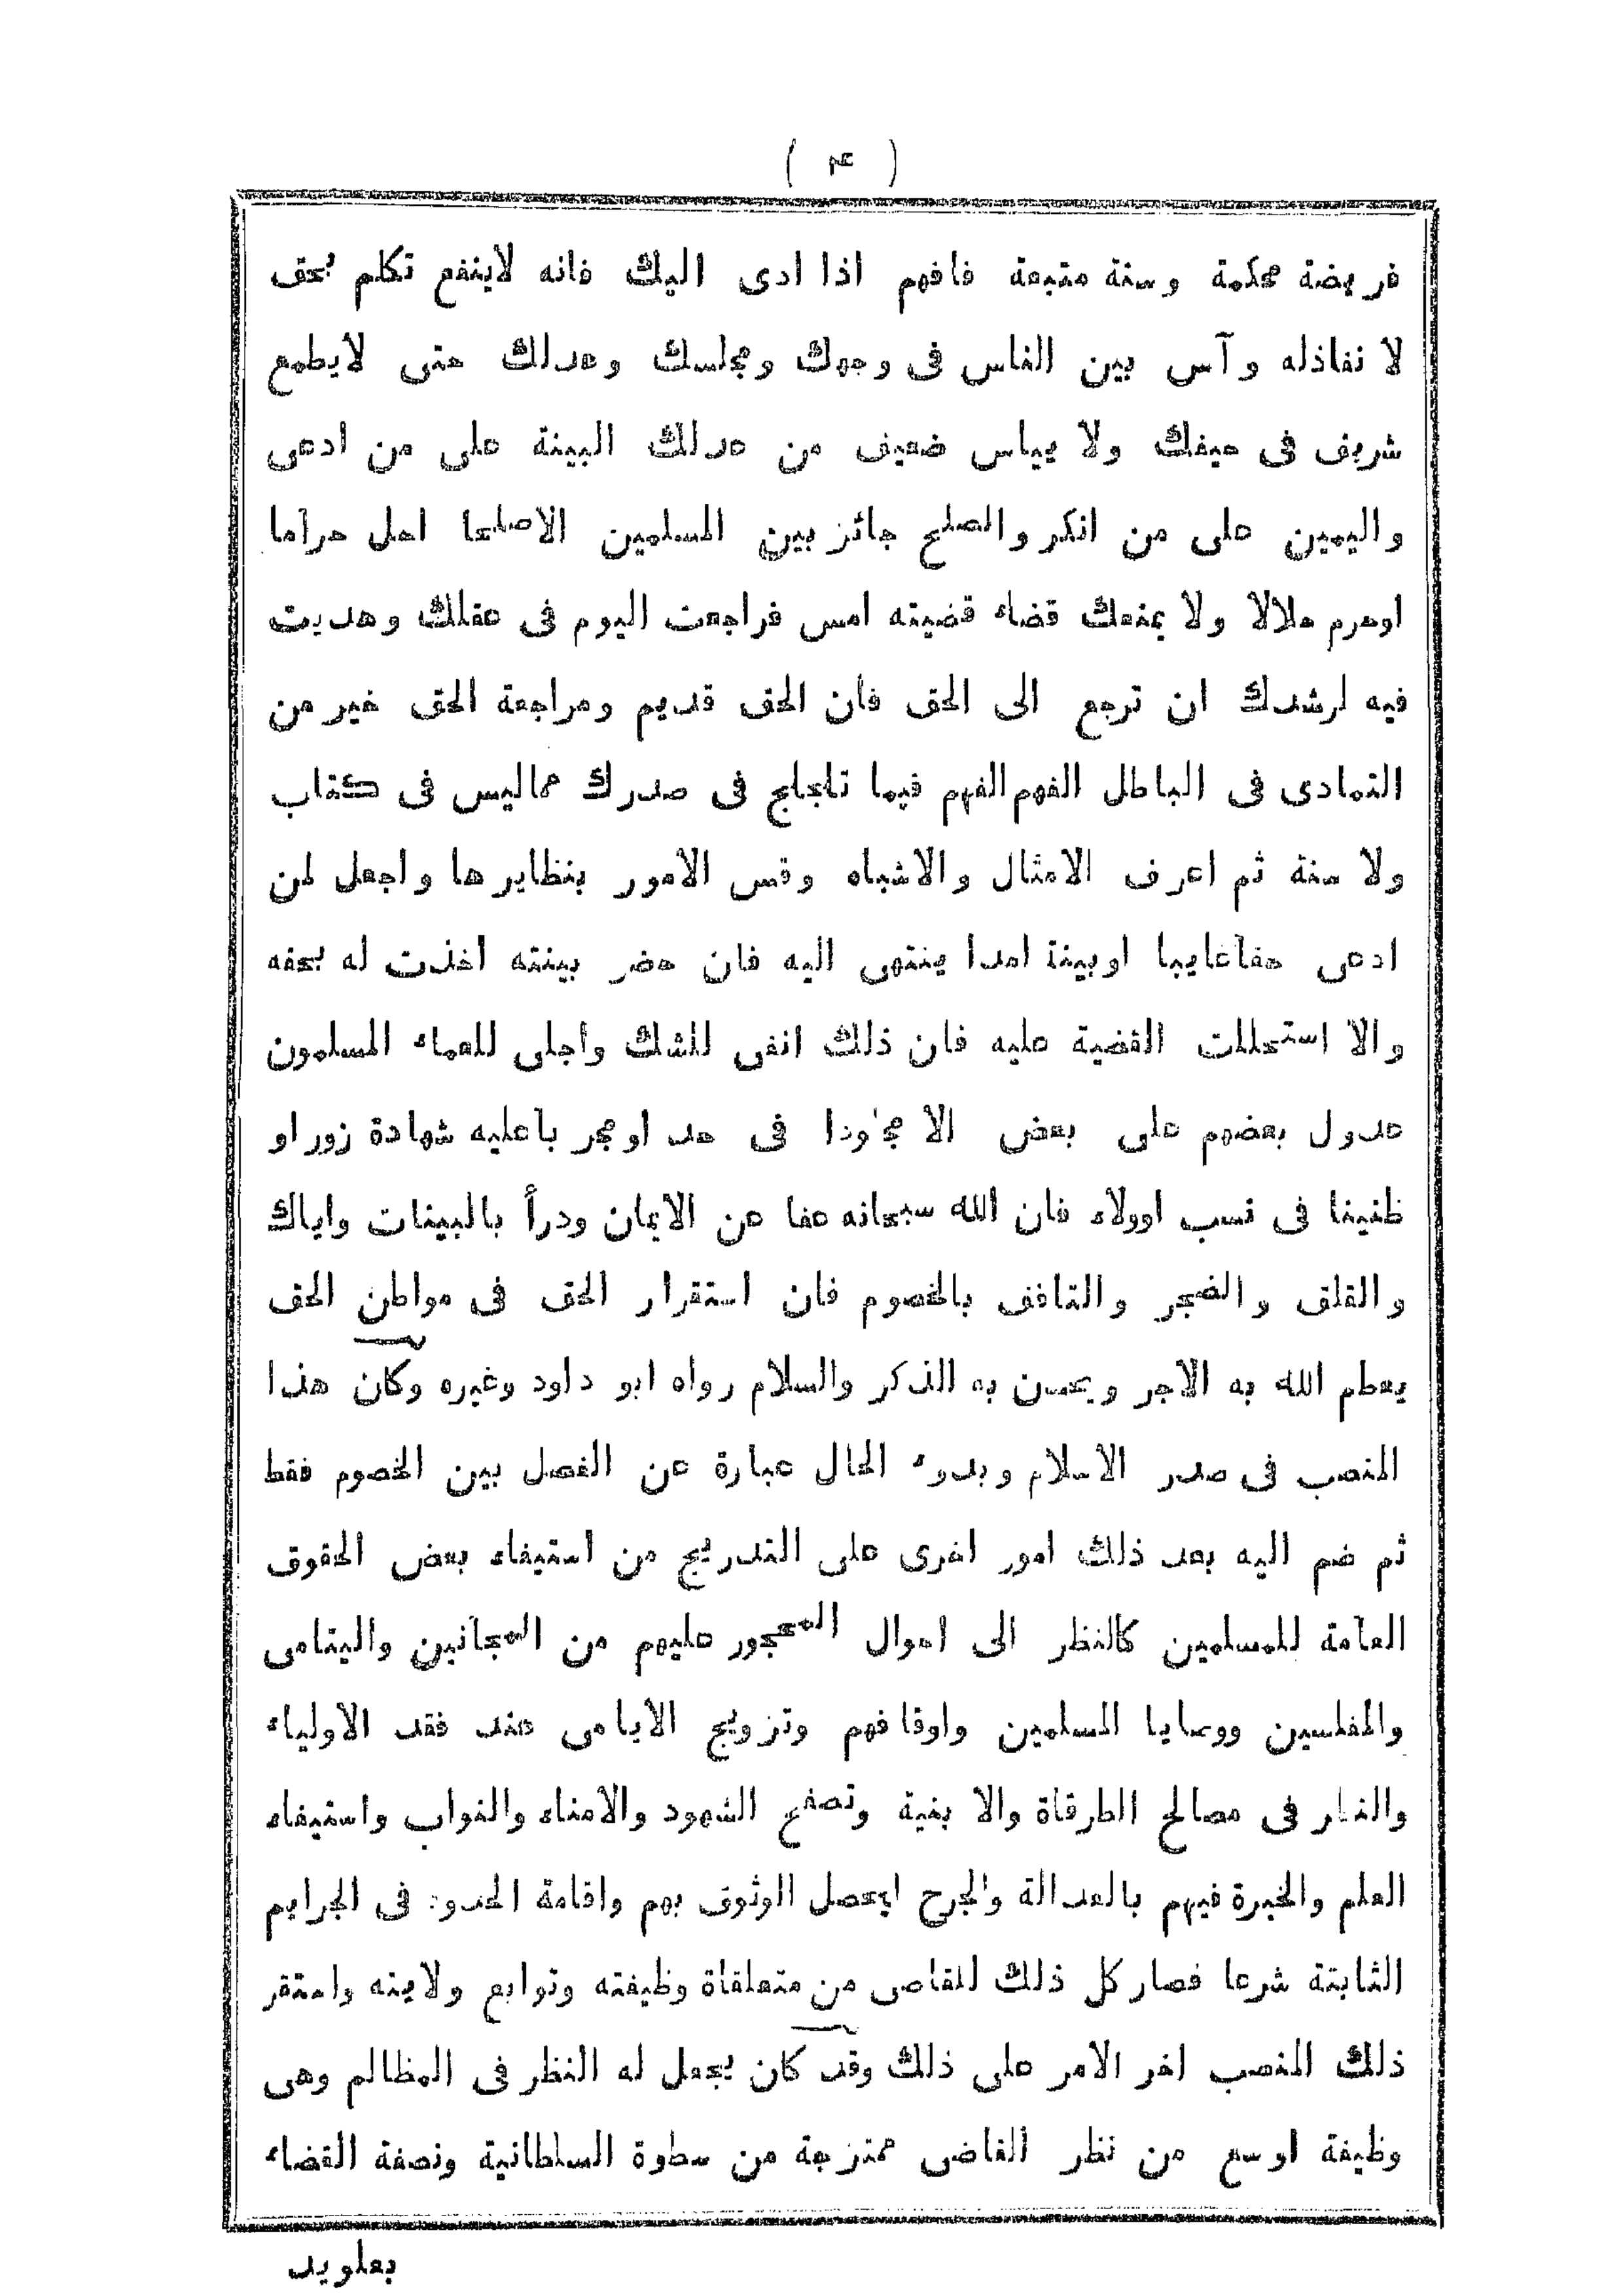 ( ۴ )
فريضة محكمة وسنة متبعة فافهم اذا ادى اليك فانه لاينفع تكلم بحق
لا نفاذله وآس بين الناس فى وجهك ومجلسك وعدلك حتى لايطمع
شريف فى حيفك ولا يياس ضعيف من عدلك البينة على من ادعى
واليمين على من انكر والصلح جائز بين المسلمين الاصلحا احل حراما
اوحرم حلالا ولا يمنعك قضاء قضيته امس فراجعت اليوم فى عقلك وهديت
فيه لرشدك ان ترجع الى الحق فان الحق قديم ومراجعة الحق خير من
التمادى فى الباطل الفهم الفهم فيما تلجلج فى صدرك مماليس فى كتاب
ولا سنة ثم اعرف الامثال والاشباه وقس الامور بنظايرها واجعل لمن
ادعى حقاغايبا اوبينة امدا ينتهى اليه فان حضر بينته اخذت له بحقه
والا استحللت القضية عليه فان ذلك انفى للشك واجلى للعماء المسلمون
عدول بعضهم على بعض الا مجلودا فى حد اومجر باعليه شهادة زوراو
ظنينا فى نسب اوولاء فان الله سبحانه عفا عن الايمان ودرأ بالبينات واياك
والقلق والضجر والتافف بالخصوم فان استقرار الحق فى مواطن الحق
يعظم الله به الاجر ويحسن به الذكر والسلام رواه ابو داود وغيره وكان هذا
المنصب فى صدر الاسلام وبدوء الحال عبارة عن الفصل بين الخصوم فقط
ثم ضم اليه بعد ذلك امور اخرى على التدريج من استيفاء بعض الحقوق
العامة للمسلمين كالنظر الى احوال المحجور عليهم من المجانين واليتامى
والمفلسين ووصايا المسلمين واوقافهم وتزويج الايامى عند فقد الاولياء
والنظر فى مصالح الطرقاة والا بنية وتصفح الشهود والامناء والنواب واستيفاء
العلم والخبرة فيهم بالعدالة والجرح ليحصل الوثوق بهم واقامة الحدود فى الجرايم
الثابتة شرعا فصار كل ذلك للقاضى من متعلقاة وظيفته وتوابع ولايته واستقر
ذلك المنصب اخر الامر على ذلك وقد كان يجعل له النظر فى المظالم وهى
وظيفة اوسع من نظر القاضى ممتزجة من سطوة السلطانية ونصفة القضاء
بعلويد